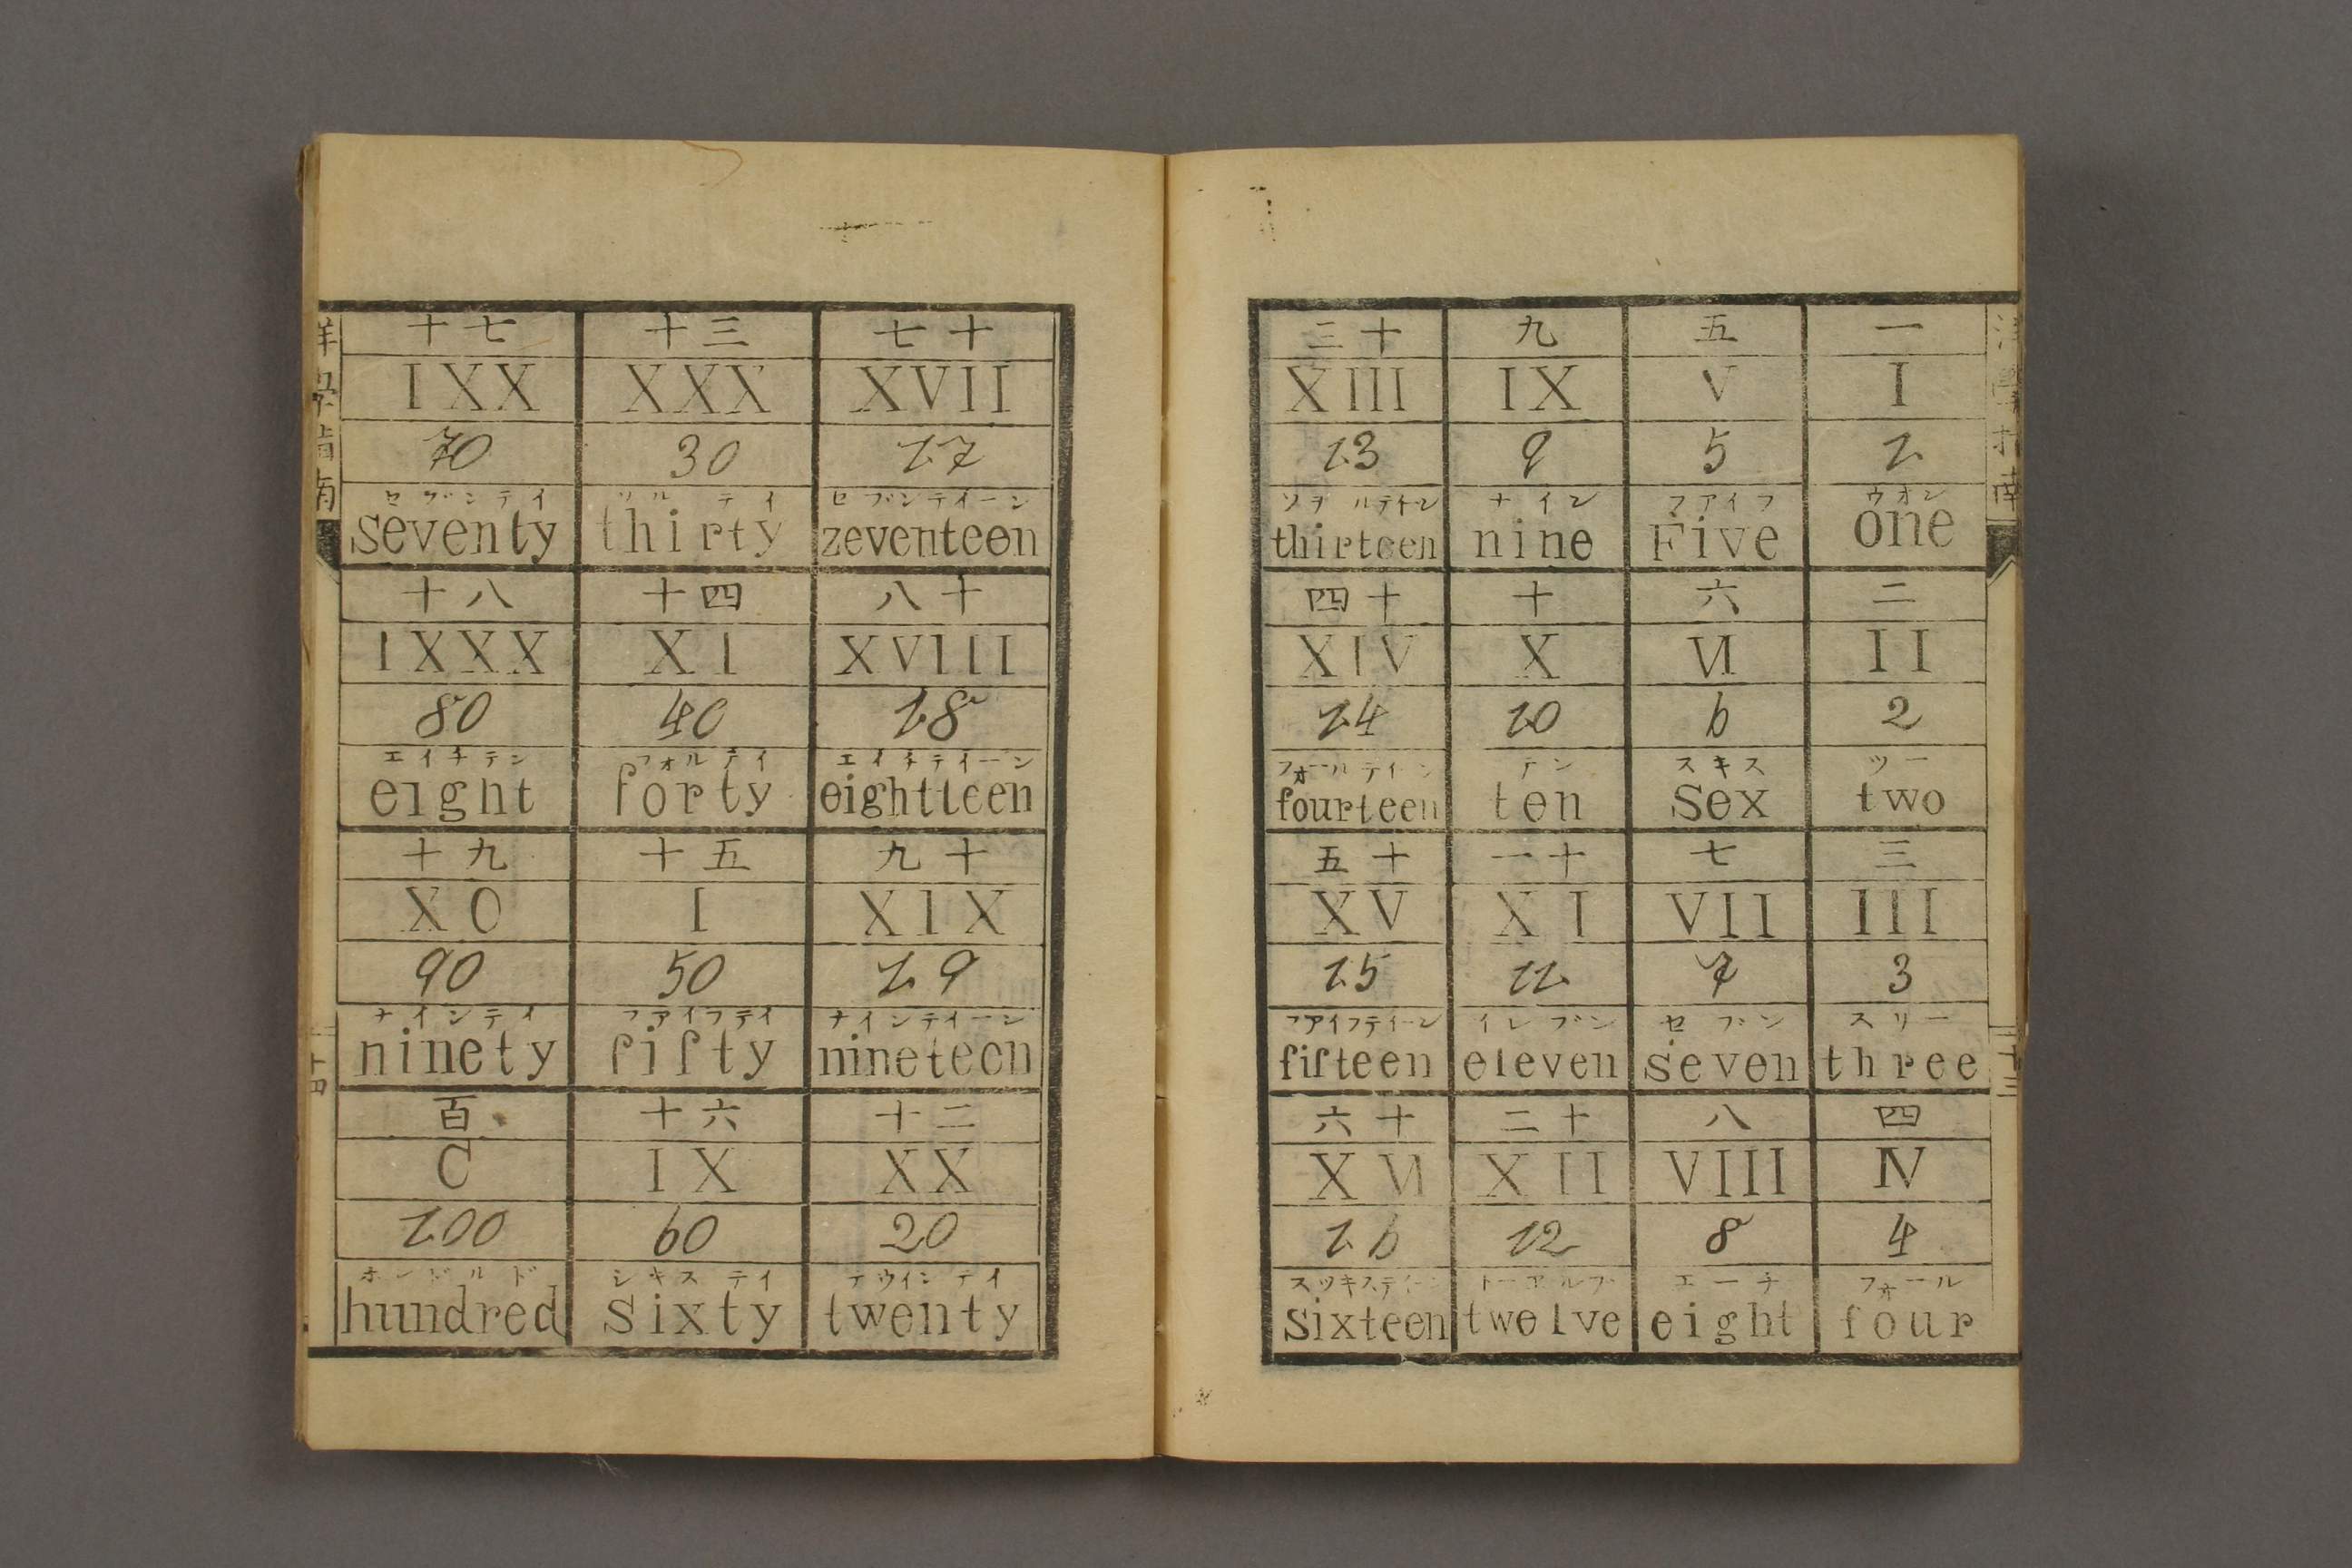 洋學指南
三十三
一
I
1
ウオン
one
二
II
2
ツー
two
三
III
3
スリー
three
四
IV
4
フォール
four
五
V
5
フアイフ
Five
六
VI
6
スキス
Sex
七
VII
7
セブン
seven
八
VIII
8
エーチ
eight
九
IX
9
ナイン
nine
十
X
10
テン
ten
十一
XI
11
イレブン
eleven
十二
XII
12
twelve
十三
XIII
13
thirteen
十四
XIV
14
フォールテイーン
fourteen
十五
XV
15
フアイフテイーン
fifteen
十六
XVI
16
スツキステイーン
Sixteen
十七
XVII
17
セブンテイーン
zeventeen
十八
XVIII
18
エイチテイーン
eightteen
十九
XIX
19
ナインテイーン
nineteen
二十
XX
20
テウインテイ
twenty
三十
XXX
30
ソルテイ
thirty
四十
XI
40
フォルテイ
forty
五十
I
50
フアイフテイ
fifty
六十
IX
60
シキステイ
Sixty
七十
IXX
70
セブンテイ
seventy
八十
IXXX
80
エイチテン
eight
九十
XO
90
ナインテイ
ninety
百
C
100
ホンドルド
hundred
洋學指南
三十四